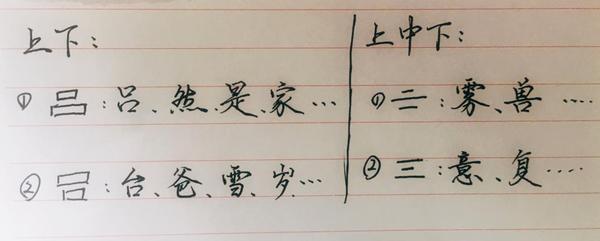 上下：
① 吕：吕、然、是、家…
② 吕：台、爸、雪、岁…
上中下：
① 三：雾、兽…
② 三：意、复…